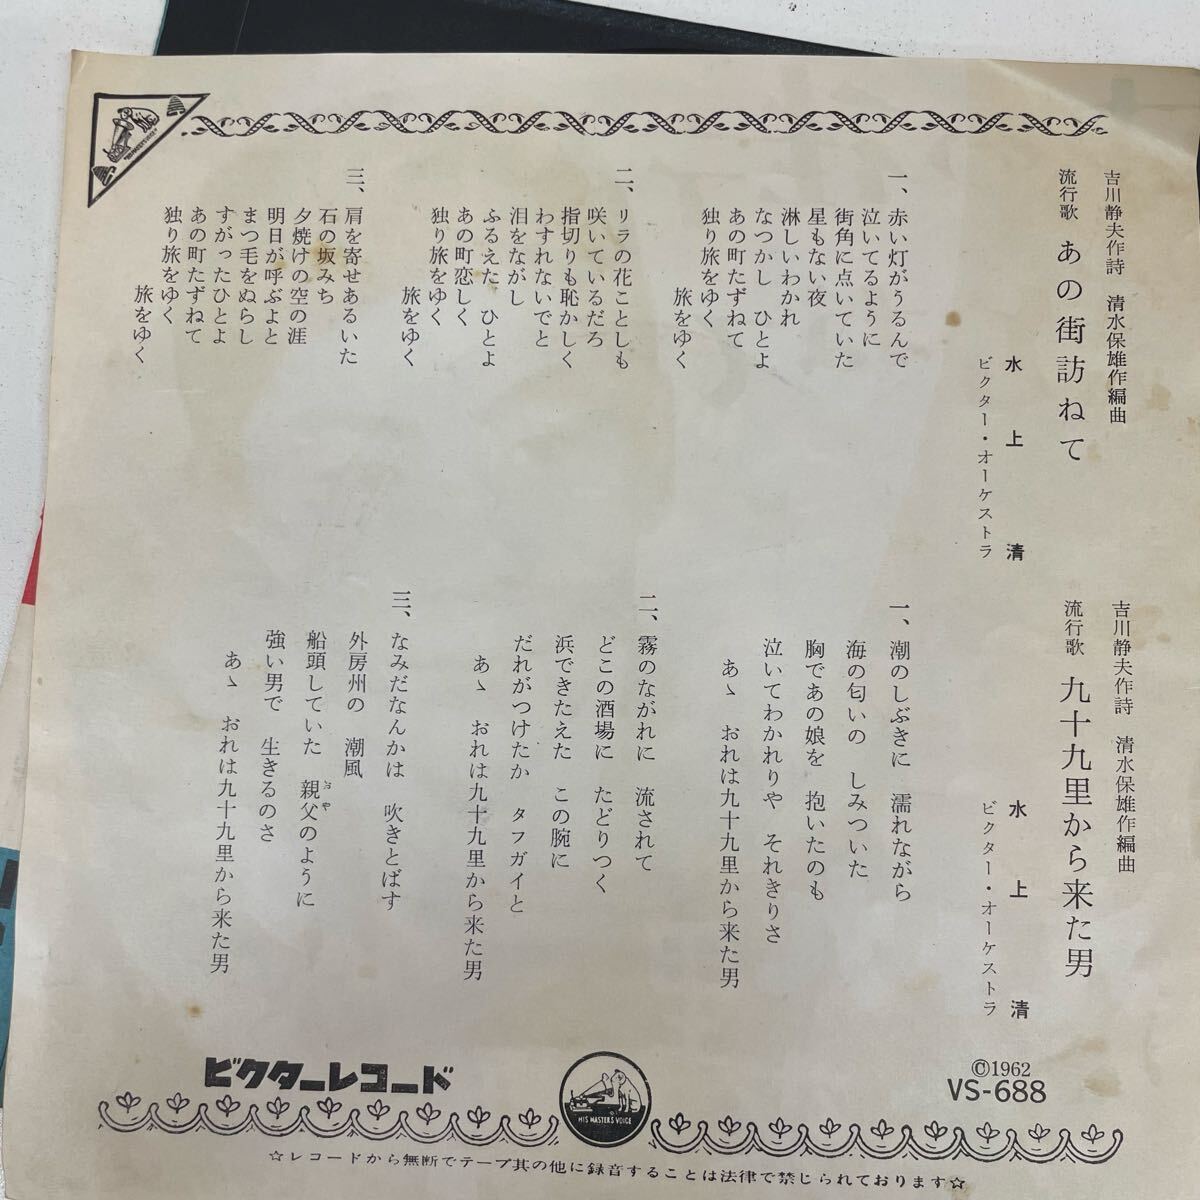 吉川静夫作詩　清水保雄作編曲
流行歌　あの街訪ねて
水上清
ビクター・オーケストラ
一、赤い灯がうるんで
泣いてるように
街角に点いていた
星もない夜
淋しいわかれ
なつかし　ひとよ
あの町たずねて
独り旅をゆく
旅をゆく
二、リラの花ことしも
咲いているだろ
指切りも恥かしく
わすれないでと
泪をながし
ふるえた　ひとよ
あの町恋しく
独り旅をゆく
旅をゆく
三、肩を寄せあるいた
石の坂みち
夕焼けの空の涯
明日が呼ぶよと
まつ毛をぬらし
すがったひとよ
あの町たずねて
独り旅をゆく
旅をゆく
吉川静夫作詩　清水保雄作編曲
流行歌　九十九里から来た男
水上清
ビクター・オーケストラ
一、潮のしぶきに　濡れながら
海の匂いの　しみついた
胸であの娘を　抱いたのも
泣いてわかれりや　それきりさ
あゝ　おれは九十九里から来た男
二、霧のながれに　流されて
どこの酒場に　たどりつく
浜できたえた　この腕に
だれがつけたか　タフガイと
あゝ　おれは九十九里から来た男
三、なみだなんかは　吹きとばす
外房州の　潮風
船頭していた　親父のように
おやじ
強い男で　生きるのさ
あゝ　おれは九十九里から来た男
©1962
VS-688
ビクターレコード
HIS MASTER'S VOICE
☆レコードから無断でテープ其の他に録音することは法律で禁じられております☆